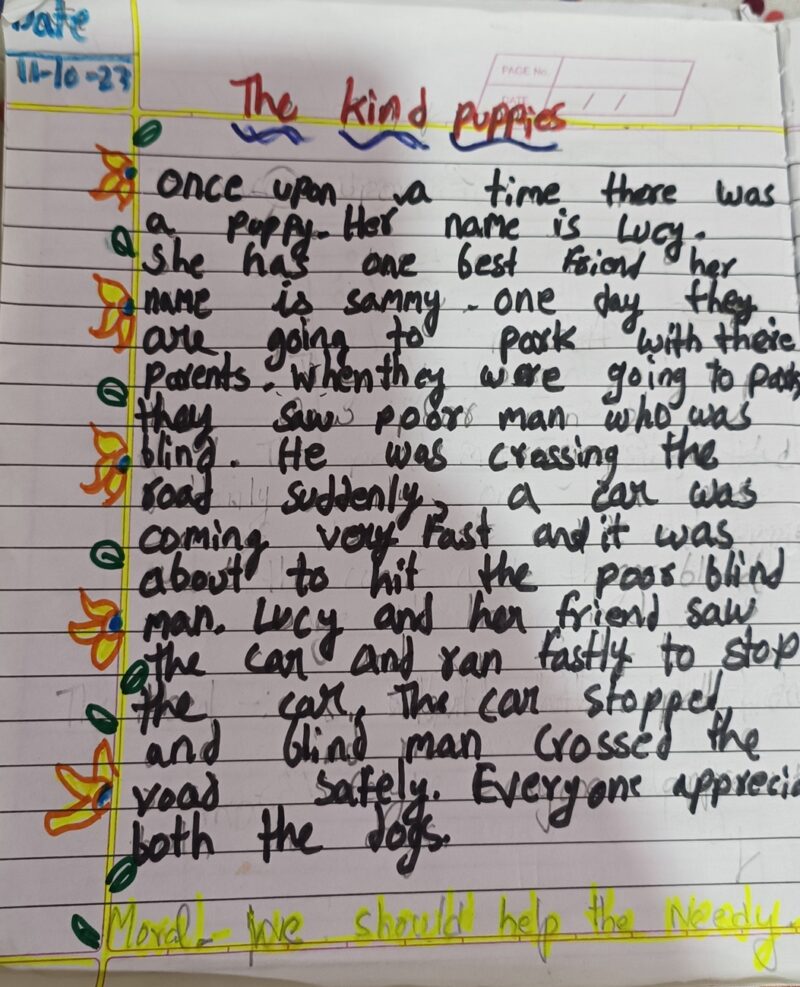 Date
11-10-23
PAGE No.
DATE / /
The kind puppies
once upon a time there was
a puppy. Her name is Lucy.
She has one best friend her
name is sammy. one day they
are going to park with there
parents. when they were going to park
they saw poor man who was
bling. He was crossing the
road suddenly, a car was
coming very fast and it was
about to hit the poor blind
man. Lucy and her friend saw
the car and ran fastly to stop
the car, The car stopped
and blind man crossed the
road safely. Everyone apprecia
both the dogs.
Moral:- We should help the Needy.